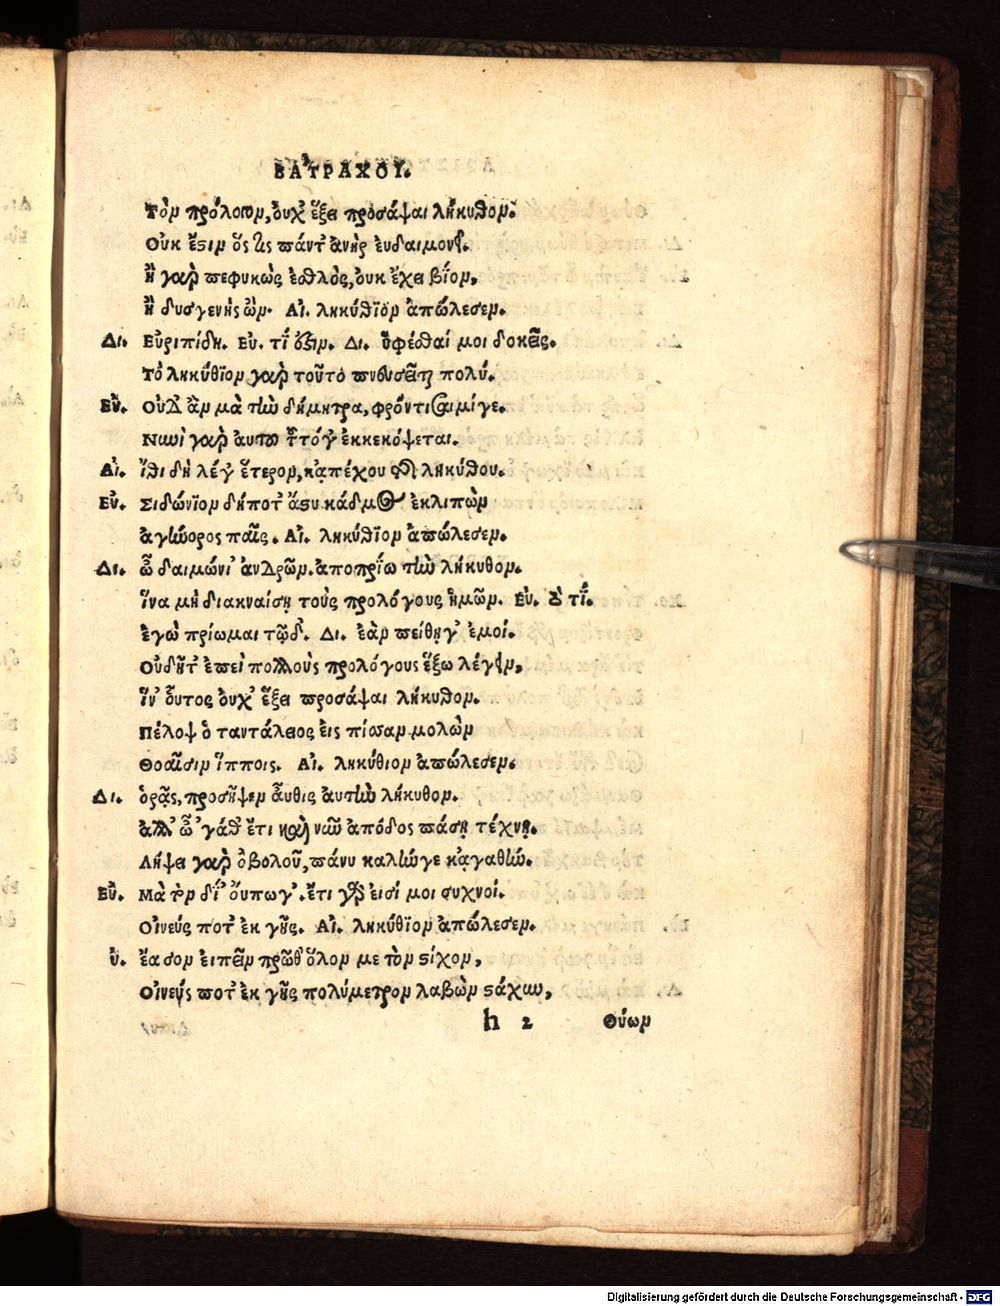 ΒΑΤΡΑΧΟΙ.
Τὸν πρόλογον, ὀυχ' ἕξει προσάψαι λήκυθον.
Οὐκ ἔστιν ὅς τις πάντ' ἀνὴρ ἐυδαιμονεῖ.
ἢ γὰρ πεφυκὼς ἐσθλὸς, ὀυκ ἔχει βίον,
ἢ δυσγενὴς ὢν. Αἰ. ληκύθϊον ἀπώλεσεν.
Δι. Εὐριπίδη. Ευ. τί ἔστιν. Δι. ὑφέσθαί μοι δοκεῖς.
Τὸ ληκύθϊον γὰρ τοῦτο πνευσεῖται πολύ.
Εὐ. Οὐδ' ἂν μὰ τὴν δήμητρα, φροντίσαιμίγε.
Νυνὶ γὰρ αυτοῦ τοῦτό γ' ἐκκεκόψεται.
Δἰ. ἴθι δὴ λέγ' ἕτερον, κἀπέχου τῆς ληκύθου.
Εὐ. Σιδώνϊον δήποτ' ἄστυ κάδμος ἐκλιπὼν
ἀγήνορος παῖς. Αἰ. ληκύθϊον ἀπώλεσεν.
Δι. ὦ δαιμόνι' ἀνδρῶν. ἀποπρίω τὴν λήκυθον.
ἵνα μὴ διακναίσῃ τοὺς προλόγους ἡμῶν. Εὐ. τὸ τί.
ἐγὼ πρίωμαι τῷδ'. Δι. ἐὰν πείθῃγ' ἐμοί.
Οὐδῆτ' ἐπεὶ πολλοὺς προλόγους ἕξω λέγειν,
ἵν' ὅυτος ὀυχ' ἕξει προσάψαι λήκυθον.
Πέλοψ ὁ ταντάλειος ἐις πίσαν μολὼν
Θοαῖσιν ἵπποις. Αἰ. ληκύθιον ἀπώλεσεν.
Δι. ὁρᾷς, προσῆψεν ἆυθις ἀυτὴν λήκυθον.
ἀλλ' ὦ 'γάθ' ἔτι καὶ νῦν ἀπόδος πάσῃ τέχνῃ.
Λήψει γὰρ ὀβολοῦ, πάνυ καλήνγε κἀγαθήν.
Εὐ. Μὰ τὸν δί' ὄυπωγ'. ἔτι γὰρ ἐισί μοι συχνοί.
Οἰνεύς ποτ' ἐκ γῆς. Αἰ. ληκύθϊον ἀπώλεσεν.
ὐ. ἔασον ἐιπεῖν πρῶθ' ὅλον με τὸν στίχον,
Οἰνεύς ποτ' ἐκ γῆς πολύμετρον λαβὼν στάχυν,
h 2 Θύων
Digitalisierung gefördert durch die Deutsche Forschungsgemeinschaft - DFG